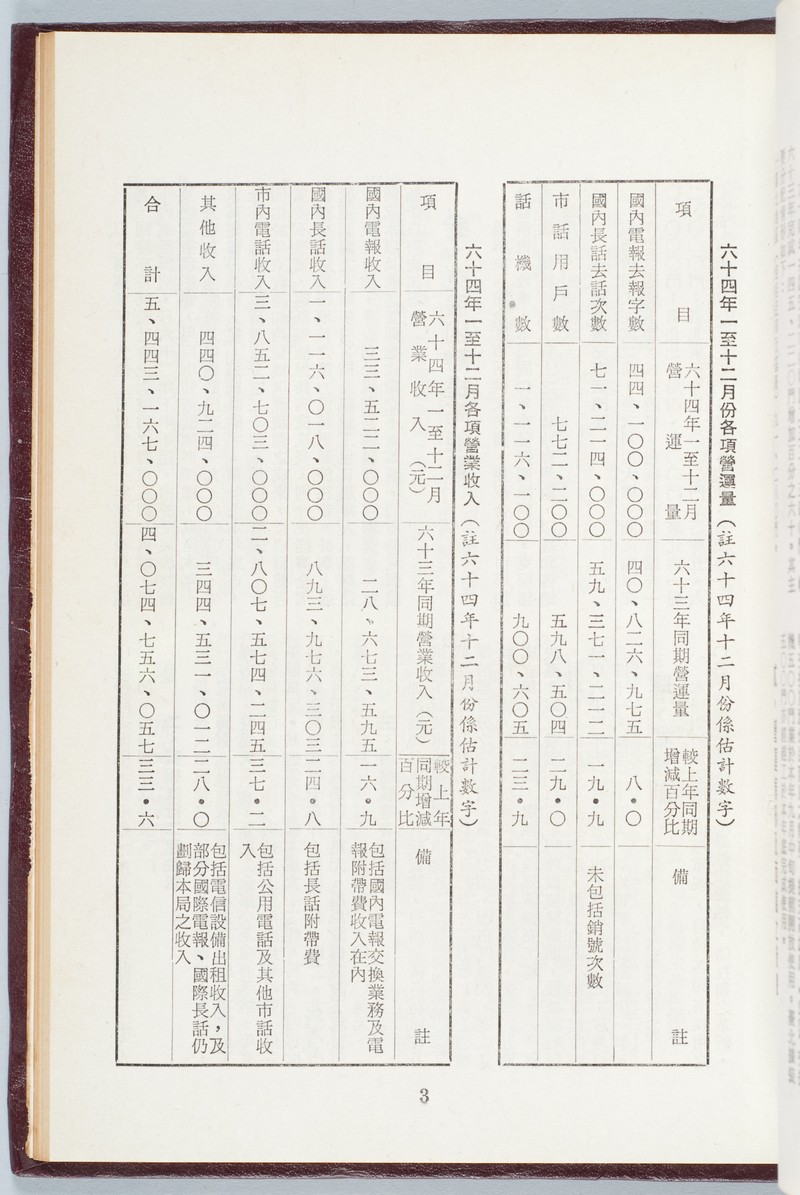 六十四年一至十二月份各項營運量（註六十四年十二月份係估計數字）
項目
六十四年一至十二月
營運量
六十三年同期營運量
較上年同期
增減百分比
備註
國內電報去報字數
四四、一〇〇、〇〇〇
四〇、八二六、九七五
八・〇
國內長話去話次數
七一、二一四、〇〇〇
五九、三七一、二一二
一九・九
未包括銷號次數
市話用戶數
七七二、二〇〇
五九八、五〇四
二九・〇
話機數
一、一一六、一〇〇
九〇〇、六〇五
二三・九
六十四年一至十二月各項營業收入（註六十四年十二月份係估計數字）
項目
六十四年一至十二月
營業收入（元）
六十三年同期營業收入（元）
較上年
同期增減
百分比
備註
國內電報收入
三三、五二二、〇〇〇
二八、六七三、五九五
一六・九
包括國內電報交換業務及電
報附帶費收入在內
國內長話收入
一、一一六、〇一八、〇〇〇
八九三、九七六、三〇三
二四・八
包括長話附帶費
市內電話收入
三、八五二、七〇三、〇〇〇
二、八〇七、五七四、二四五
三七・二
包括公用電話及其他市話收
入
其他收入
四四〇、九二四、〇〇〇
三四四、五三一、〇一二
二八・〇
包括電信設備出租收入，及
部分國際電報、國際長話仍
劃歸本局之收入
合計
五、四四三、一六七、〇〇〇
四、〇七四、七五六、〇五七
三三・六
3